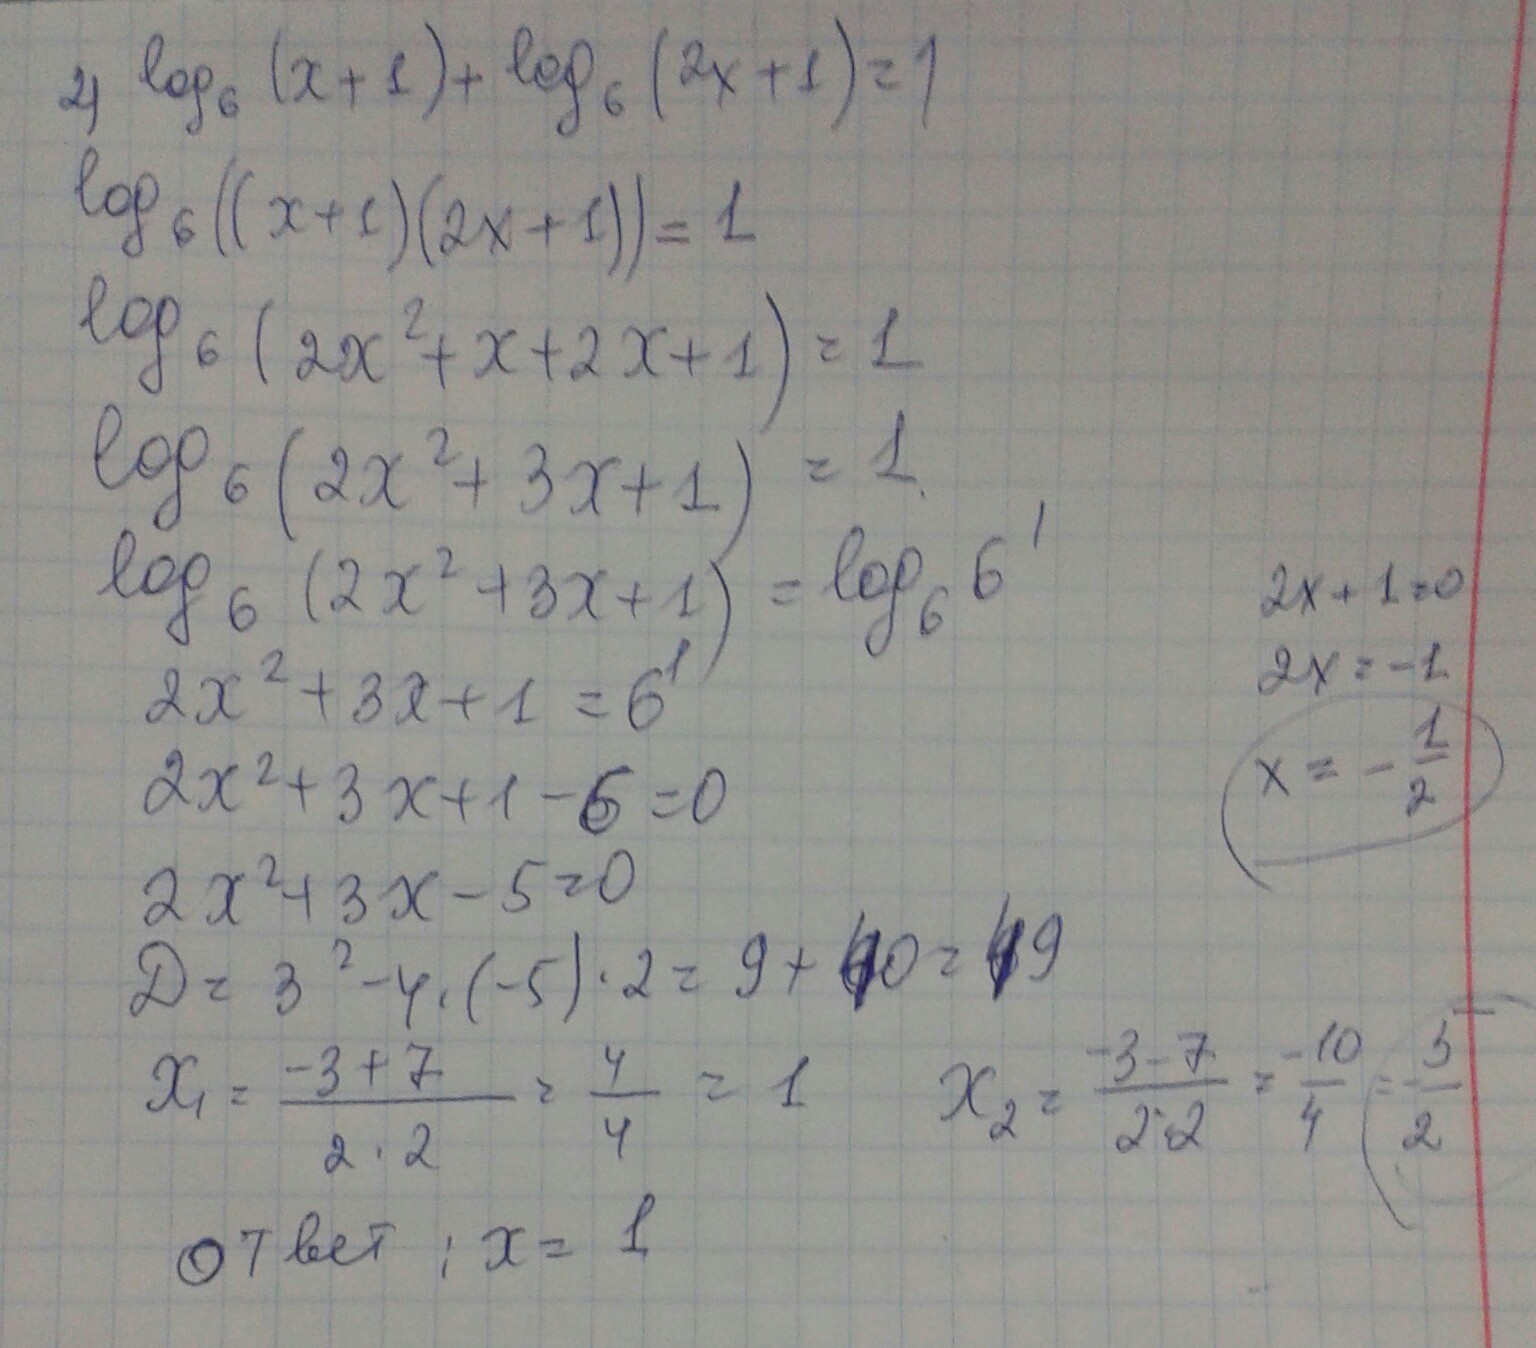 2) log₆ (x+1) + log₆ (2x+1) = 1
log₆ ((x+1)(2x+1)) = 1
log₆ (2x² + x + 2x + 1) = 1
log₆ (2x² + 3x + 1) = 1
log₆ (2x² + 3x + 1) = log₆ 6¹
2x² + 3x + 1 = 6¹
2x² + 3x + 1 - 6 = 0
2x² + 3x - 5 = 0
D = 3² - 4 · (-5) · 2 = 9 + 40 = 49
x₁ = (-3+7)/(2·2) = 4/4 = 1 x₂ = (-3-7)/(2·2) = -10/4 = -5/2
ответ: x = 1
2x + 1 = 0
2x = -1
x = -1/2